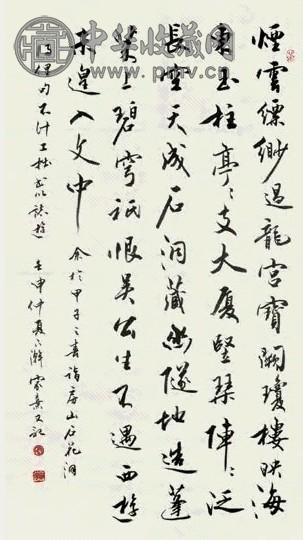 中华收藏网
煙雲縹緲過龍宮寶闕瓊樓映海
東玉柱亭〻支大厦豎琴陣〻泛
長空天成石洞藏幽隧地造蓬
萊上碧穹祇恨吳公生不遇西遊
未遑入文中 余於甲子之春詣房山石花洞
得俚句不計工拙書以誌遊 壬申仲夏 又記